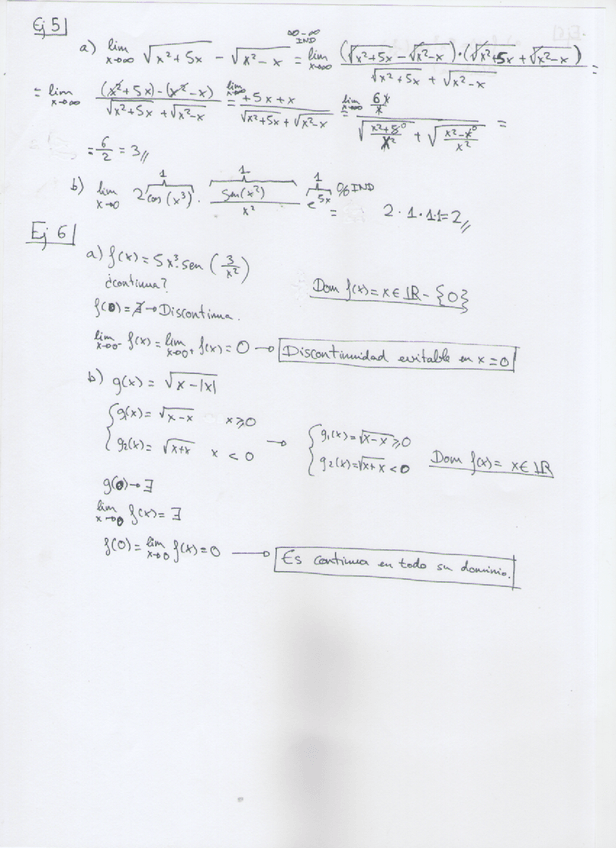 Ej 5
a) lim x→∞ √(x²+5x) - √(x²-x) = (∞-∞ IND) lim x→∞ (√(x²+5x) - √(x²-x))·(√(x²+5x) + √(x²-x)) / (√(x²+5x) + √(x²-x)) =
= lim x→∞ ((x²+5x)-(x²-x)) / (√(x²+5x) + √(x²-x)) = lim x→∞ (+5x+x) / (√(x²+5x) + √(x²-x)) = lim x→∞ (6x/x) / (√((x²+5⁰)/x²) + √((x²-x⁰)/x²)) =
= 6/2 = 3//
b) lim x→0 2 cos(x³) · sen(x²)/x² · e^5x = 0/0 IND 2·1·1·1=2//
1 1 1
Ej 6
a) f(x) = 5x³·sen(3/x²)
¿continua? Dom f(x) = x∈ℝ-{0}
f(0) = ∄ → Discontinua.
lim x→0⁻ f(x) = lim x→0⁺ f(x) = 0 → Discontinuidad evitable en x=0
b) g(x) = √(x-|x|)
{ g₁(x) = √(x-x) x≥0 → { g₁(x) = √(x-x) ≥0
{ g₂(x) = √(x+x) x<0 { g₂(x) = √(x+x) <0 Dom f(x) = x∈ℝ
g(0) → ∃
lim x→0 f(x) = ∃
f(0) = lim x→0 f(x) = 0 → Es continua en todo su dominio.